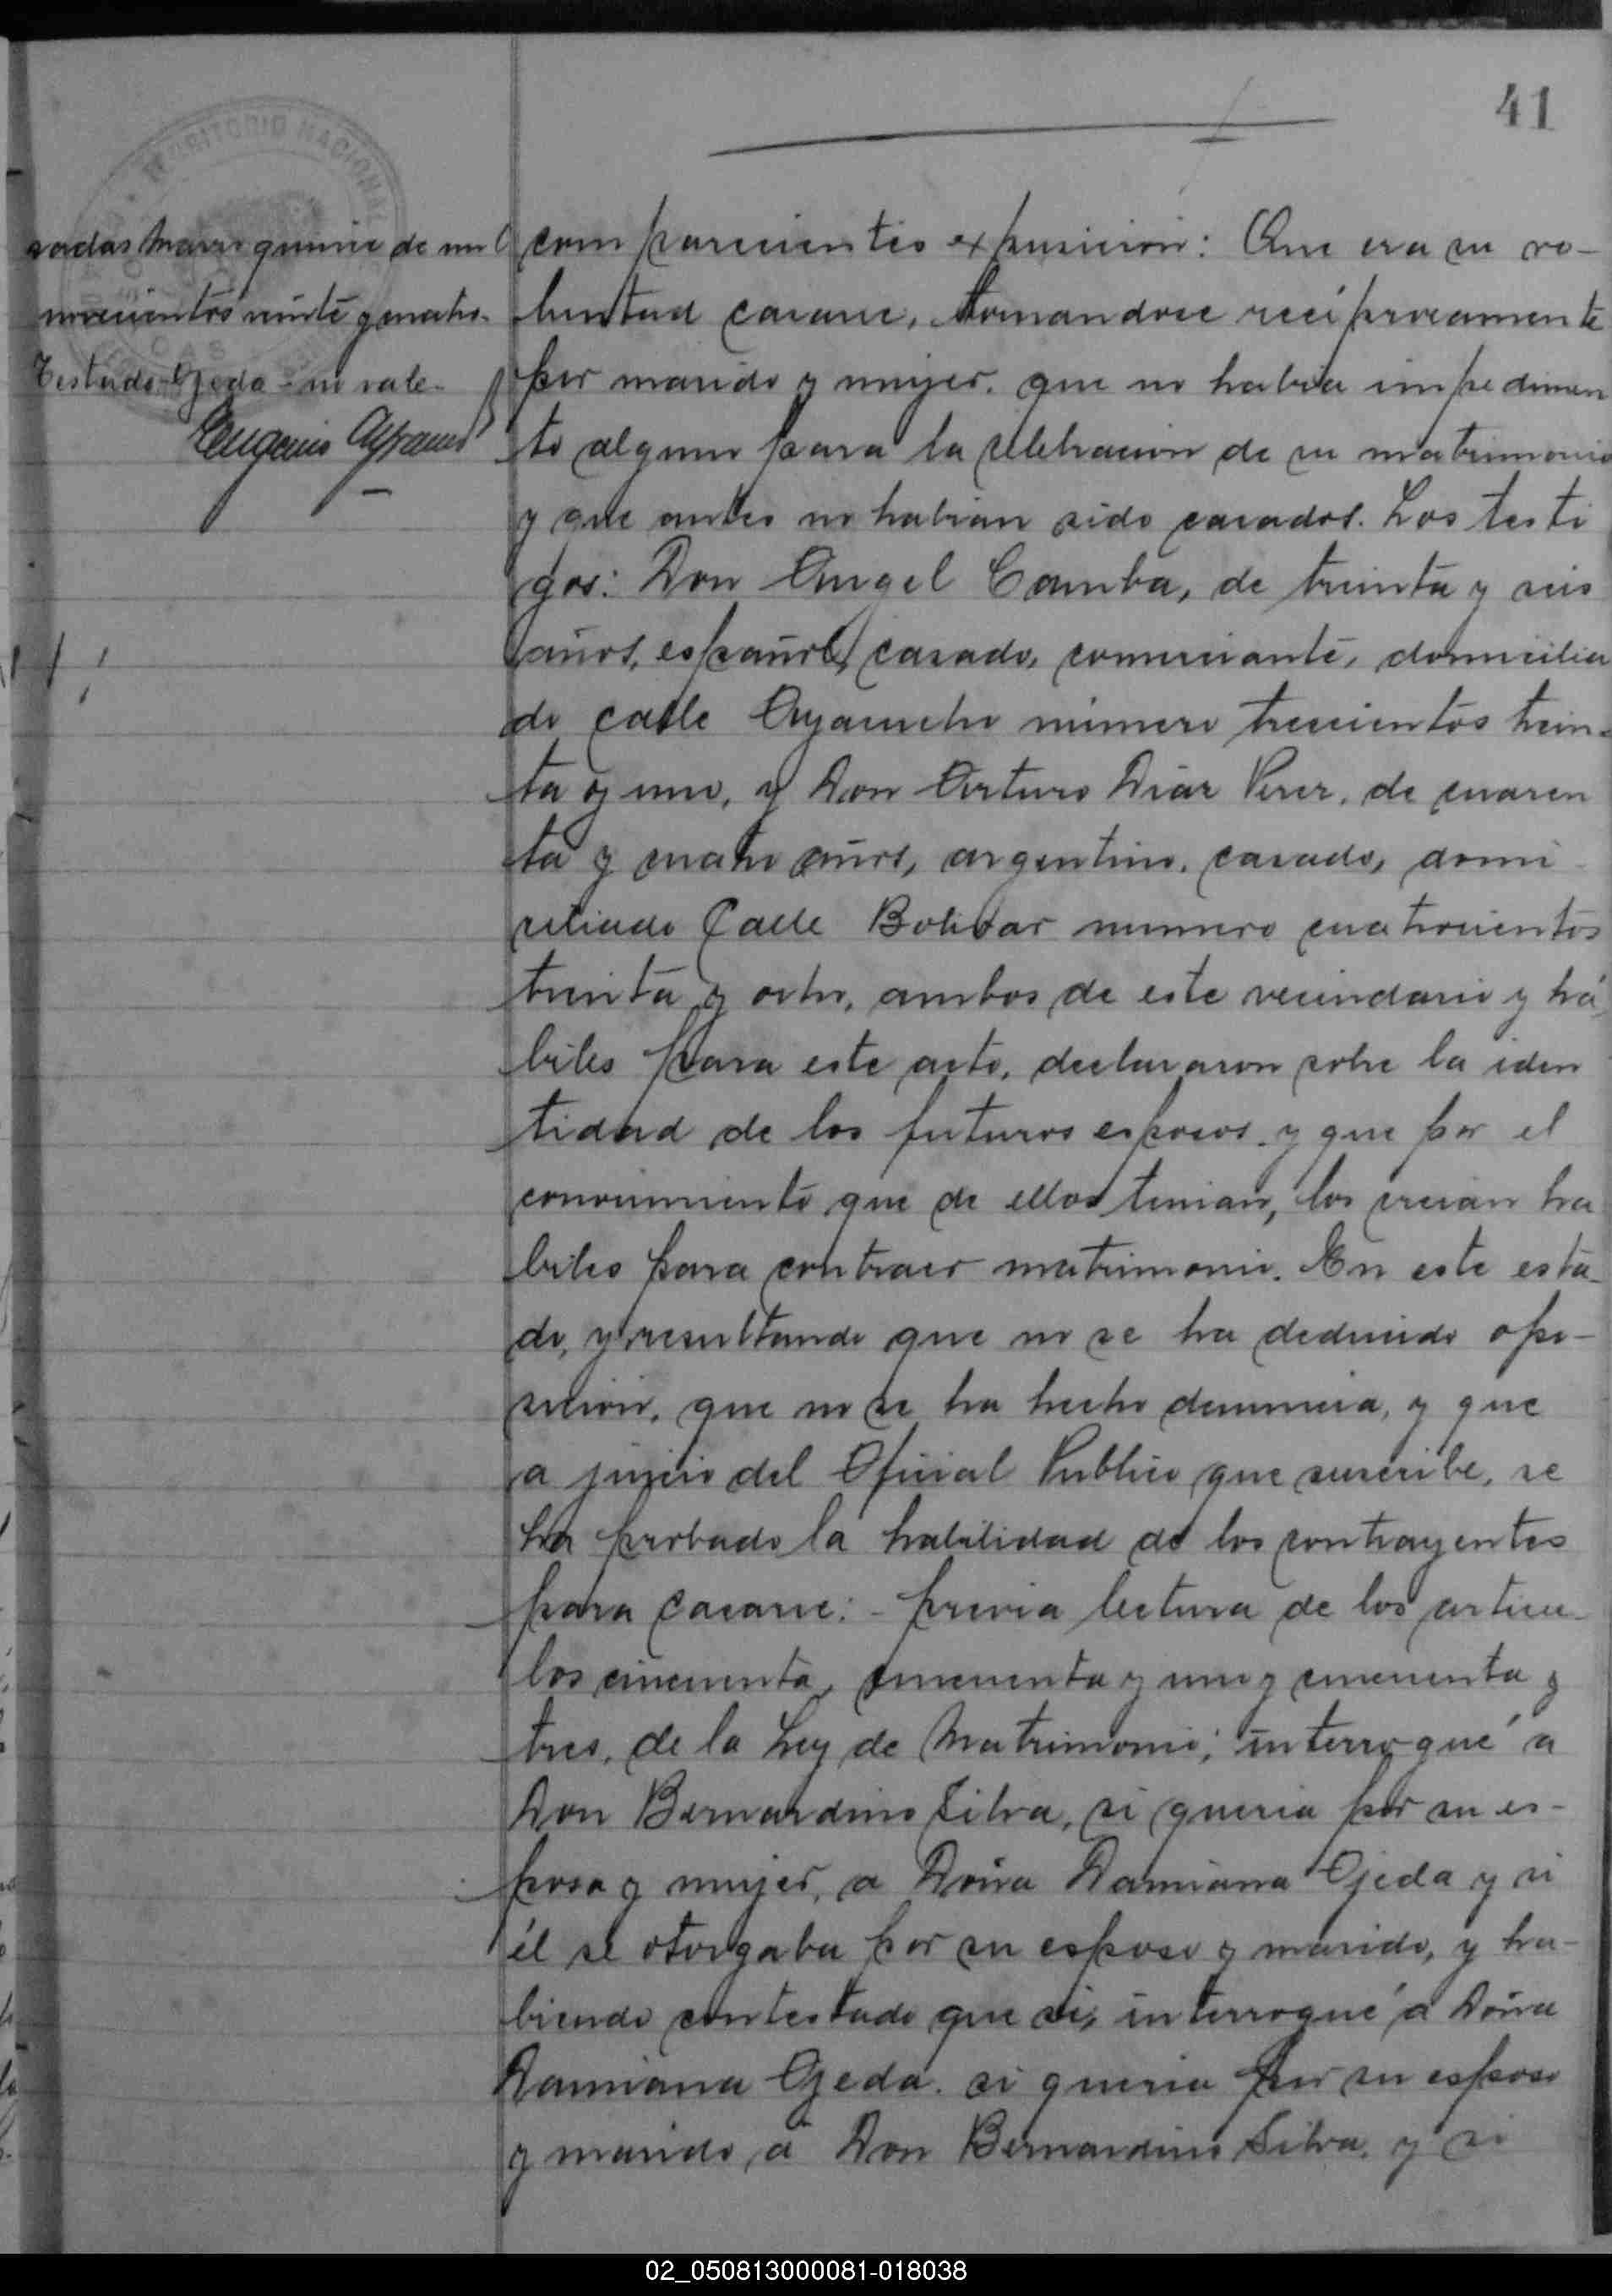 41
TERRITORIO NACIONAL
sadas Marzo quince de mil
novecientos veinte y cuatro.
Testado-Ojeda-no vale.
comparecientes exposición: Que era su vo-
luntad casarse, tomandose recíprocamente
por marido y mujer. que no habia impedimen
to alguno para la celebración de su matrimonio
y que antes no habian sido casados. Los testi
gos: Don Angel Camba, de treinta y seis
años, español, casado, comerciante, domicilia
do calle Ayacucho número trescientos trein-
ta y uno, y Don Arturo Diaz Perez, de cuaren
ta y cuatro años, argentino, casado, domi
ciliado Calle Bolivar numero cuatrocientos
treinta y ocho, ambos de este vecindario y há
biles para este acto, declararon sobre la iden
tidad de los futuros esposos, y que por el
conocimiento que de ellos tenian, los creian ha
biles para contraer matrimonio. En este esta-
do, y resultando que no se ha deducido opo-
sición, que no se ha hecho denuncia, y que
a juicio del Oficial Publico que suscribe, se
ha probado la habilidad de los contrayentes
para casarse:- previa lectura de los articu-
los cincuenta, cincuenta y uno y cincuenta y
tres, de la Ley de Matrimonio; interrogué a
Don Bernardino Silva, si queria por su es-
posa y mujer, a Doña Damiana Ojeda y si
él se otorgaba por su esposo y marido, y ha-
biendo contestado que si, interrogué a Doña
Damiana Ojeda. si queria por su esposo
y marido, a Don Bernardino Silva, y si
02_050813000081-018038